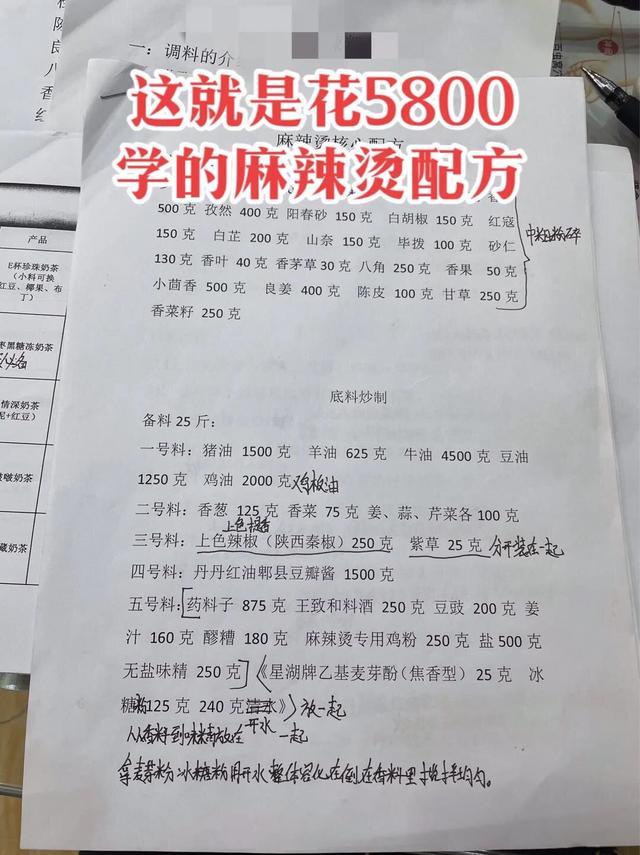 一：调料的介
这就是花5800
学的麻辣烫配方
麻辣烫核心配方
500 克 孜然 400 克 阳春砂 150 克 白胡椒 150 克 红寇
150 克 白芷 200 克 山奈 150 克 毕拨 100 克 砂仁
130 克 香叶 40 克 香茅草 30 克 八角 250 克 香果 50 克
小茴香 500 克 良姜 400 克 陈皮 100 克 甘草 250 克
香菜籽 250 克
中粗粉碎
底料炒制
备料 25 斤：
一号料：猪油 1500 克 羊油 625 克 牛油 4500 克 豆油
1250 克 鸡油 2000 克 鸡板油
二号料：香葱 125 克 香菜 75 克 姜、蒜、芹菜各 100 克
上色提香
三号料：上色辣椒（陕西秦椒）250 克 紫草 25 克 分开装在一起
四号料：丹丹红油郫县豆瓣酱 1500 克
五号料：药料子 875 克 王致和料酒 250 克 豆豉 200 克 姜
汁 160 克 醪糟 180 克 麻辣烫专用鸡粉 250 克 盐 500 克
无盐味精 250 克《星湖牌乙基麦芽酚（焦香型）25 克 冰
糖粉 125 克 240 克 清水》放一起
开水
从香料到味精放在一起
拿麦芽粉冰糖粉用开水整体容化在倒在香料里搅拌均匀。
产品
E杯珍珠奶茶
（小料可换
红豆、椰果、布
丁）
枣黑糖冻奶茶
情深奶茶
泥+红豆）
啵啵奶茶
藏奶茶